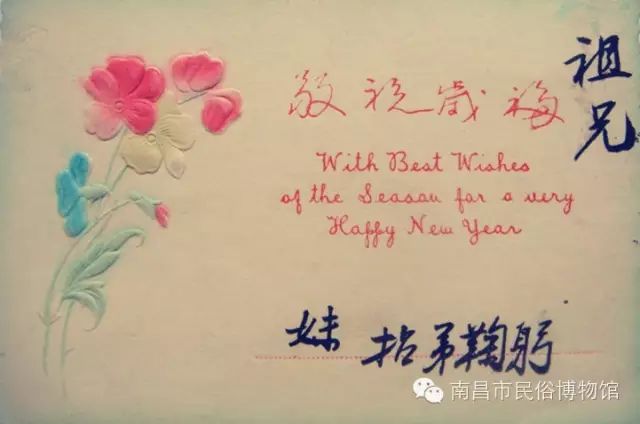 祖兄
敬祝歲禧
With Best Wishes
of the Seasau for a very
Happy New Year
妹 拈弟鞠躬
南昌市民俗博物馆